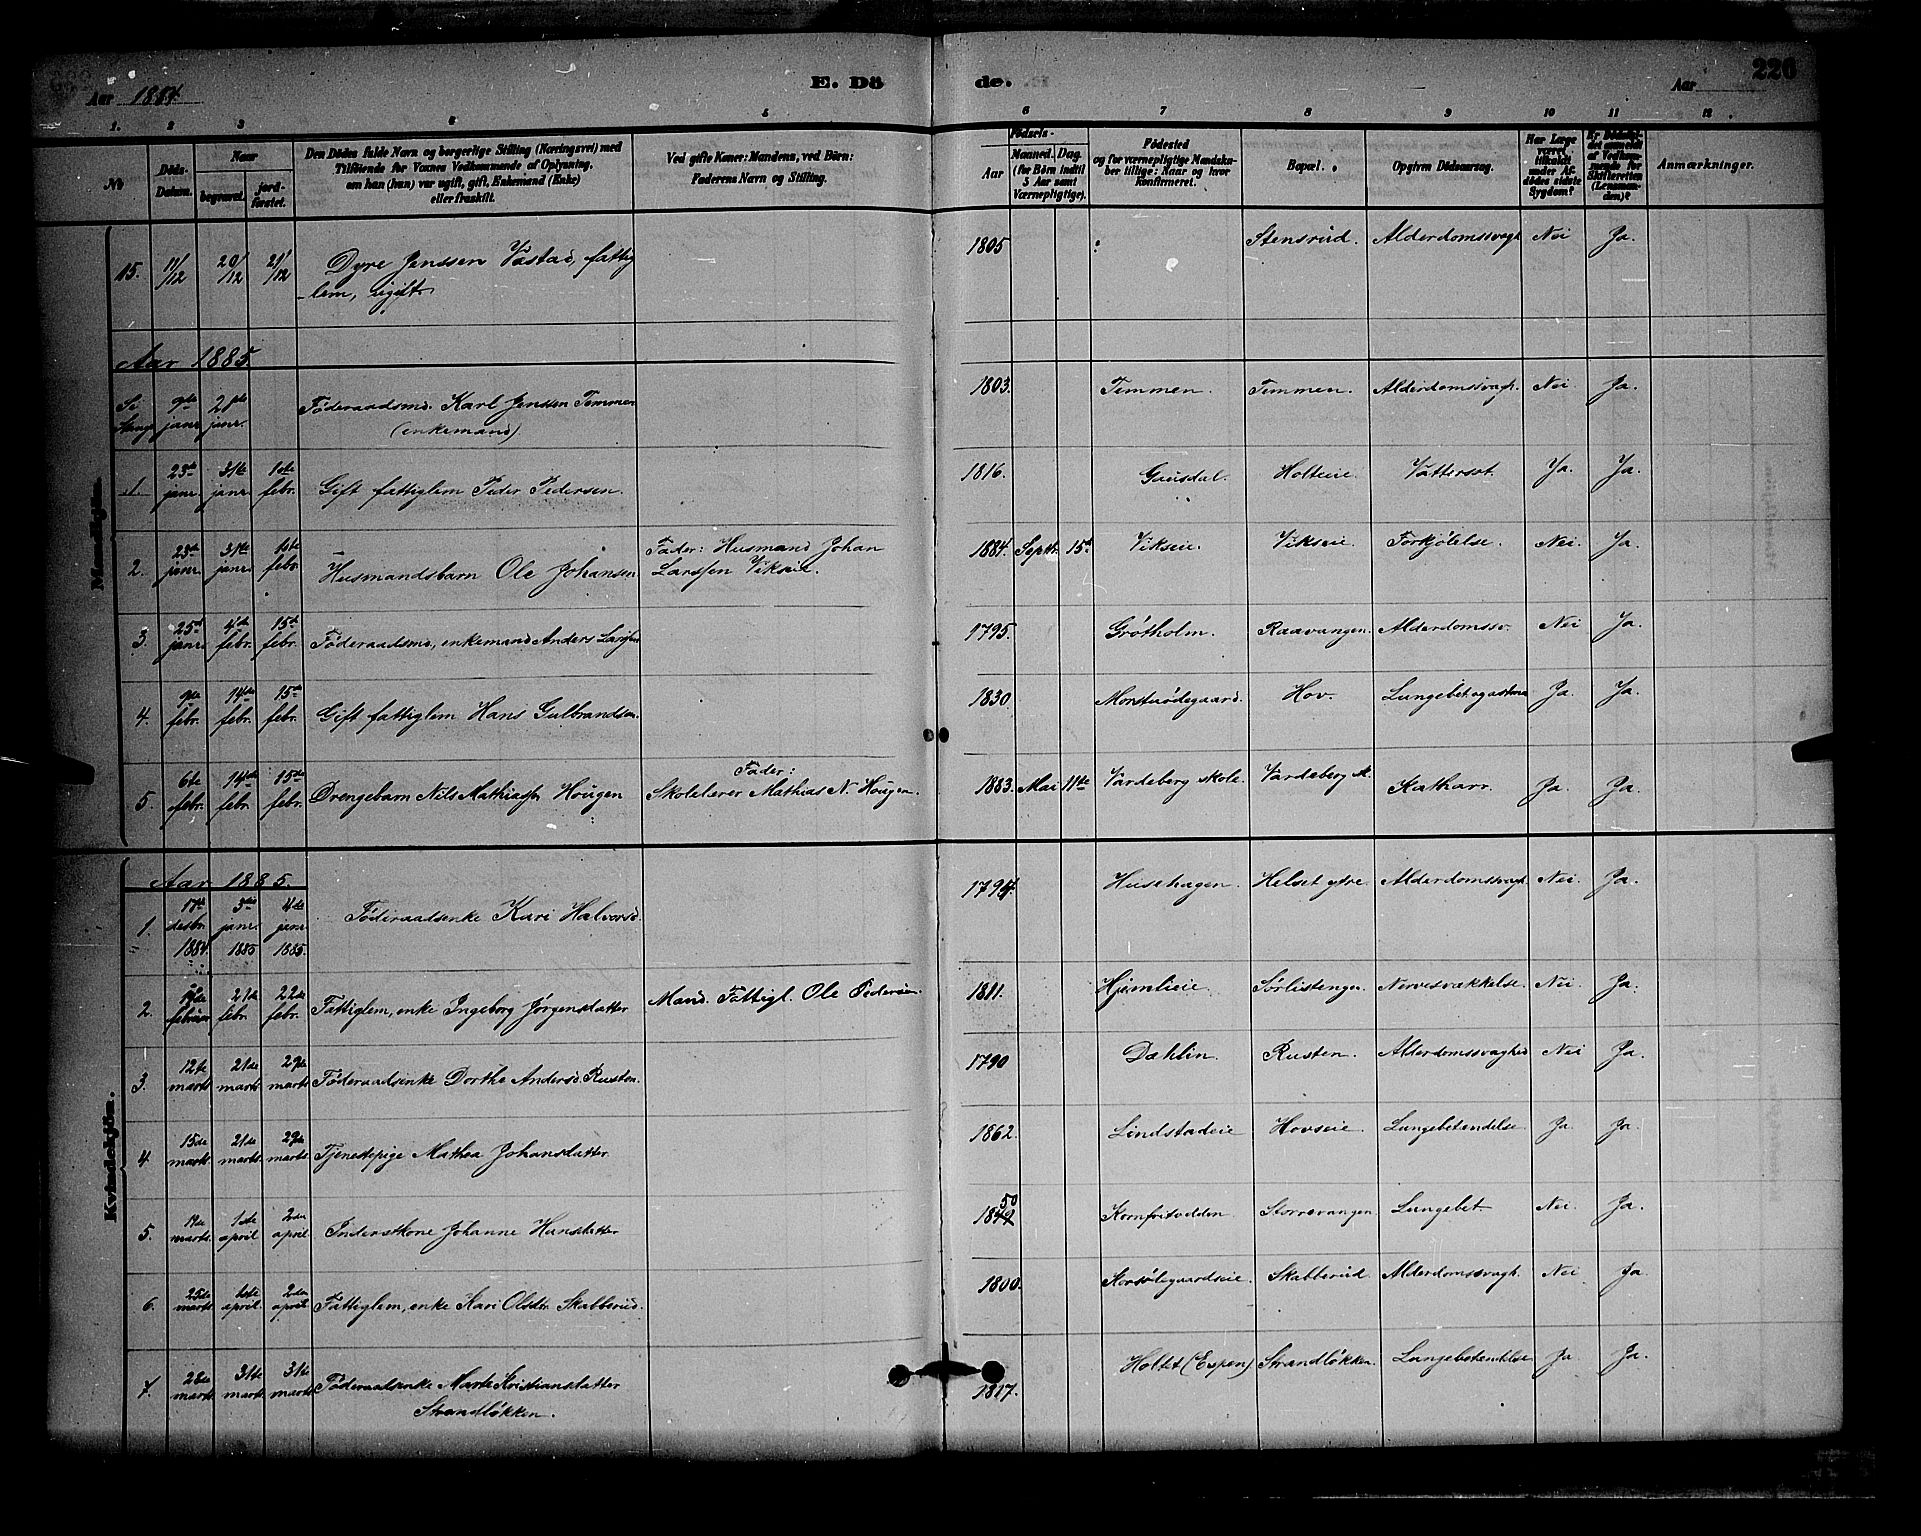 Aar 1884.
E. Dö de.
Aar
226
1. 2 3 4 5 6 7 8 9 10 11 12
No
Döds-Datum.
Naar
begravet.
jord-fæstet.
Den Dödes fulde Navn og borgerlige Stilling (Næringsvei) med
Tilföiende for Voxnes Vedkommende af Oplysning,
om han (hun) var ugift, gift, Enkemand (Enke)
eller fraskilt.
Ved gifte Koner: Mandens, ved Börn:
Faderens Navn og Stilling.
Födsels-
Aar
Maaned. Dag.
(for Börn indtil
5 Aar samt
Værnepligtige).
Födested
og for værnepligtige Mandska-
ber tillige: Naar og hvor
konfirmeret.
Bopæl.
Opgiven Dödsaarsag.
Har Læge
været
tilkaldt
under Af-
dödes sidste
Sygdom?
Er Dödsfal-
det anmeldt
af Vedkom-
mende for
Skifteretten
(Lensman-
den)?
Anmærkninger.
Mandkjön.
15. 11/12 20/12 21/12 Dyre Jenssen Vastad, fattig
-lem, ugift 1805 Stensrud. Alderdomssvagh Nei Ja.
Aar 1885.
9de janr. Föderaadsmd. Karl Jenssen Temmen
(enkemand) 1803. Temmen. Temmen. Alderdomssvagh. Nei Ja.
1 23de janr. 31te janr. 1ste febr. Gift fattiglem Peder Pedersen. 1816. Gausdal. Holteie. Vattersot. Ja. Ja.
2. 23de janr. 31te janr. 1ste febr. Husmandsbarn Ole Johansen Fader: Husmand Johan
Larssen Vikseie. 1884 Septbr. 15de Vikseie. Vikseie. Forkjölelse. Nei. Ja.
3. 25de janr. 4de febr. 15de febr. Föderaadsmd, enkemand Anders Larssen 1795. Grötholm. Raavangen. Alderdomssv. Nei Ja.
4. febr. 14de febr. 15de febr. Gift fattiglem Hans Gulbrandsen. 1830 Monsterödegaard. Hov. Lungebet. og astma Ja. Ja.
5. 6te febr. 14de febr. 15de febr. Drengebarn Nils Mathiassen Hougen Fader:
Skolelærer Mathias N. Hougen. 1883. Mai 11te Vardeberg skole. Vardeberg sk. Katharr. Ja. Ja.
Kvindekjön.
Aar 1885.
1. 17de desbr. 1884. 3die janr. 1885 4de janr. 1885. Föderaadsenke Kari Halvorsd. 1794. Husehagen. Helset ytre. Alderdomssvagh. Nei. Ja.
2. februar 21de febr. 22de febr. Fattiglem, enke Ingeborg Jörgensdatter Mand. Fattigl. Ole Pedersen. 1811. Hjemlieie. Sörlistengen. Nervesvækkelse. Nei Ja.
3. 12te marts 21de marts 29de marts Föderaadsenke Dorthe Andersd. Rusten. 1790 Dæhlin. Rusten. Alderdomssvaghed Nei Ja.
4 15de marts 21de marts. 29de marts Tjenestepige Mathea Johansdatter 1862. Lindstadeie Hovseie. Lungebetændelse. Ja. Ja.
5. marts. 1ste april 2den april Inderstkone Johanne Hansdatter 1849 50 Kornfritodden Storrevangen Lungebet. Nei. Ja.
6. 25de marts 1ste april. 2den april Fattiglem, enke Kari Olsdtr. Skabberud. 1800. Korsölegaardseie. Skabberud. Alderdomssvagh. Nei Ja.
7. 28de marts 31te marts 31te marts Föderaadsenke Marte Kristiansdatter
Strandlökken. 1817. Holtet (Espen) Strandlökken. Lungebetændelse Ja Ja.